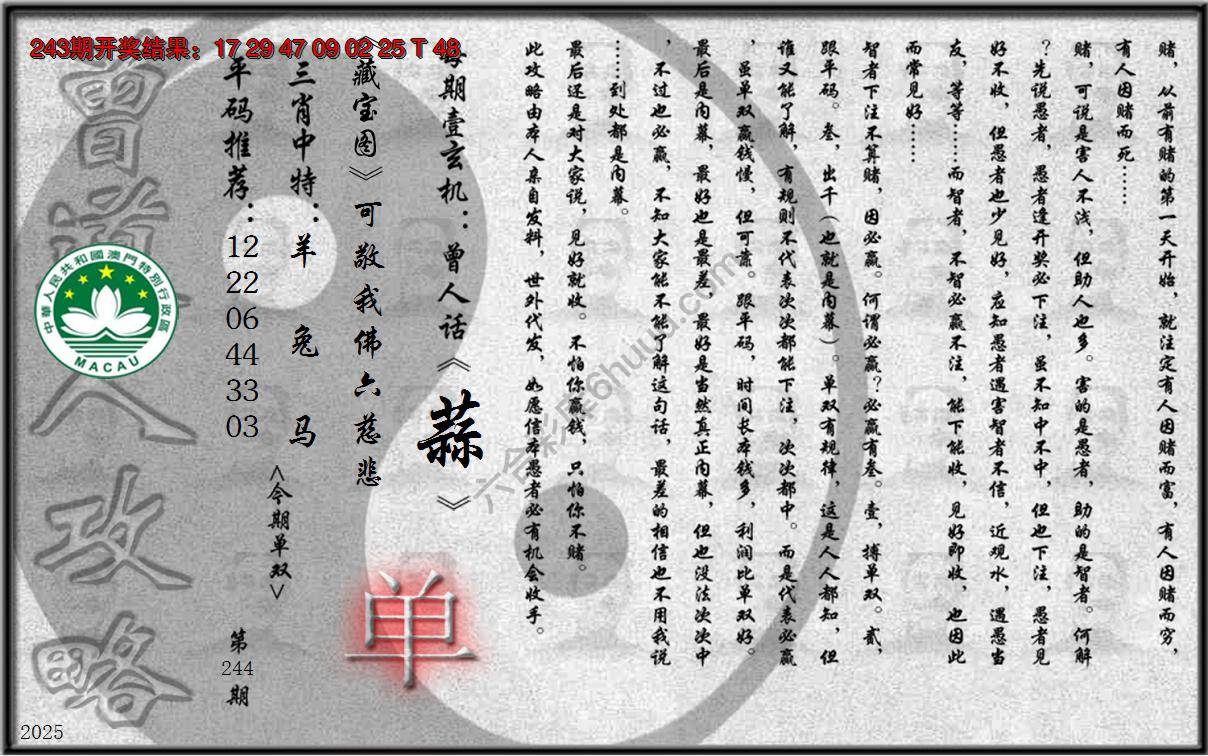 243期开奖结果：17 29 47 09 02 25 T 48
赌，从前有赌的第一天开始，就注定有人因赌而富，有人因赌而穷，
有人因赌而死……
赌，可说是害人不浅，但助人也多。害的是愚者，助的是智者。何解
？先说愚者，愚者逢开奖必下注，虽不知中不中，但也下注，愚者见
好不收，但愚者也少见好，应知愚者遇害智者不信，近观水，遇愚当
友，等等……而智者，不智必赢不注，能下能收，见好即收，也因此
而常见好……
智者下注不算赌，因必赢。何谓必赢？必赢有叁。壹，搏单双。贰，
跟平码。叁，出千（也就是内幕）。单双有规律，这是人人都知，但
谁又能了解，有规则不代表次次都能下注，次次都中。而是代表必赢
，虽单双赢钱慢，但可靠。跟平码，时间长本钱多，利润比单双好。
最后是内幕，最好也是最差，最好是当然真正内幕，但也没法次次中
，不过也必赢，不知大家能不能了解这句话，最差的相信也不用我说
……到处都是内幕。
最后还是对大家说，见好就收。不怕你赢钱，只怕你不赌。
此攻略由本人亲自发料，世外代发，如愿信本愚者必有机会收手。
每期壹玄机：曾人话《蒜》
《藏宝图》可敬我佛六慈悲
三肖中特：羊 兔 马
平码推荐：
12
22
06
44
33
03
<今期单双>
单
第
244
期
曾道人攻略
中華人民共和國澳門特別行政區
MACAU
2025